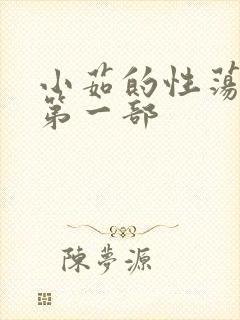 小茹的性荡
第一部
陳夢源